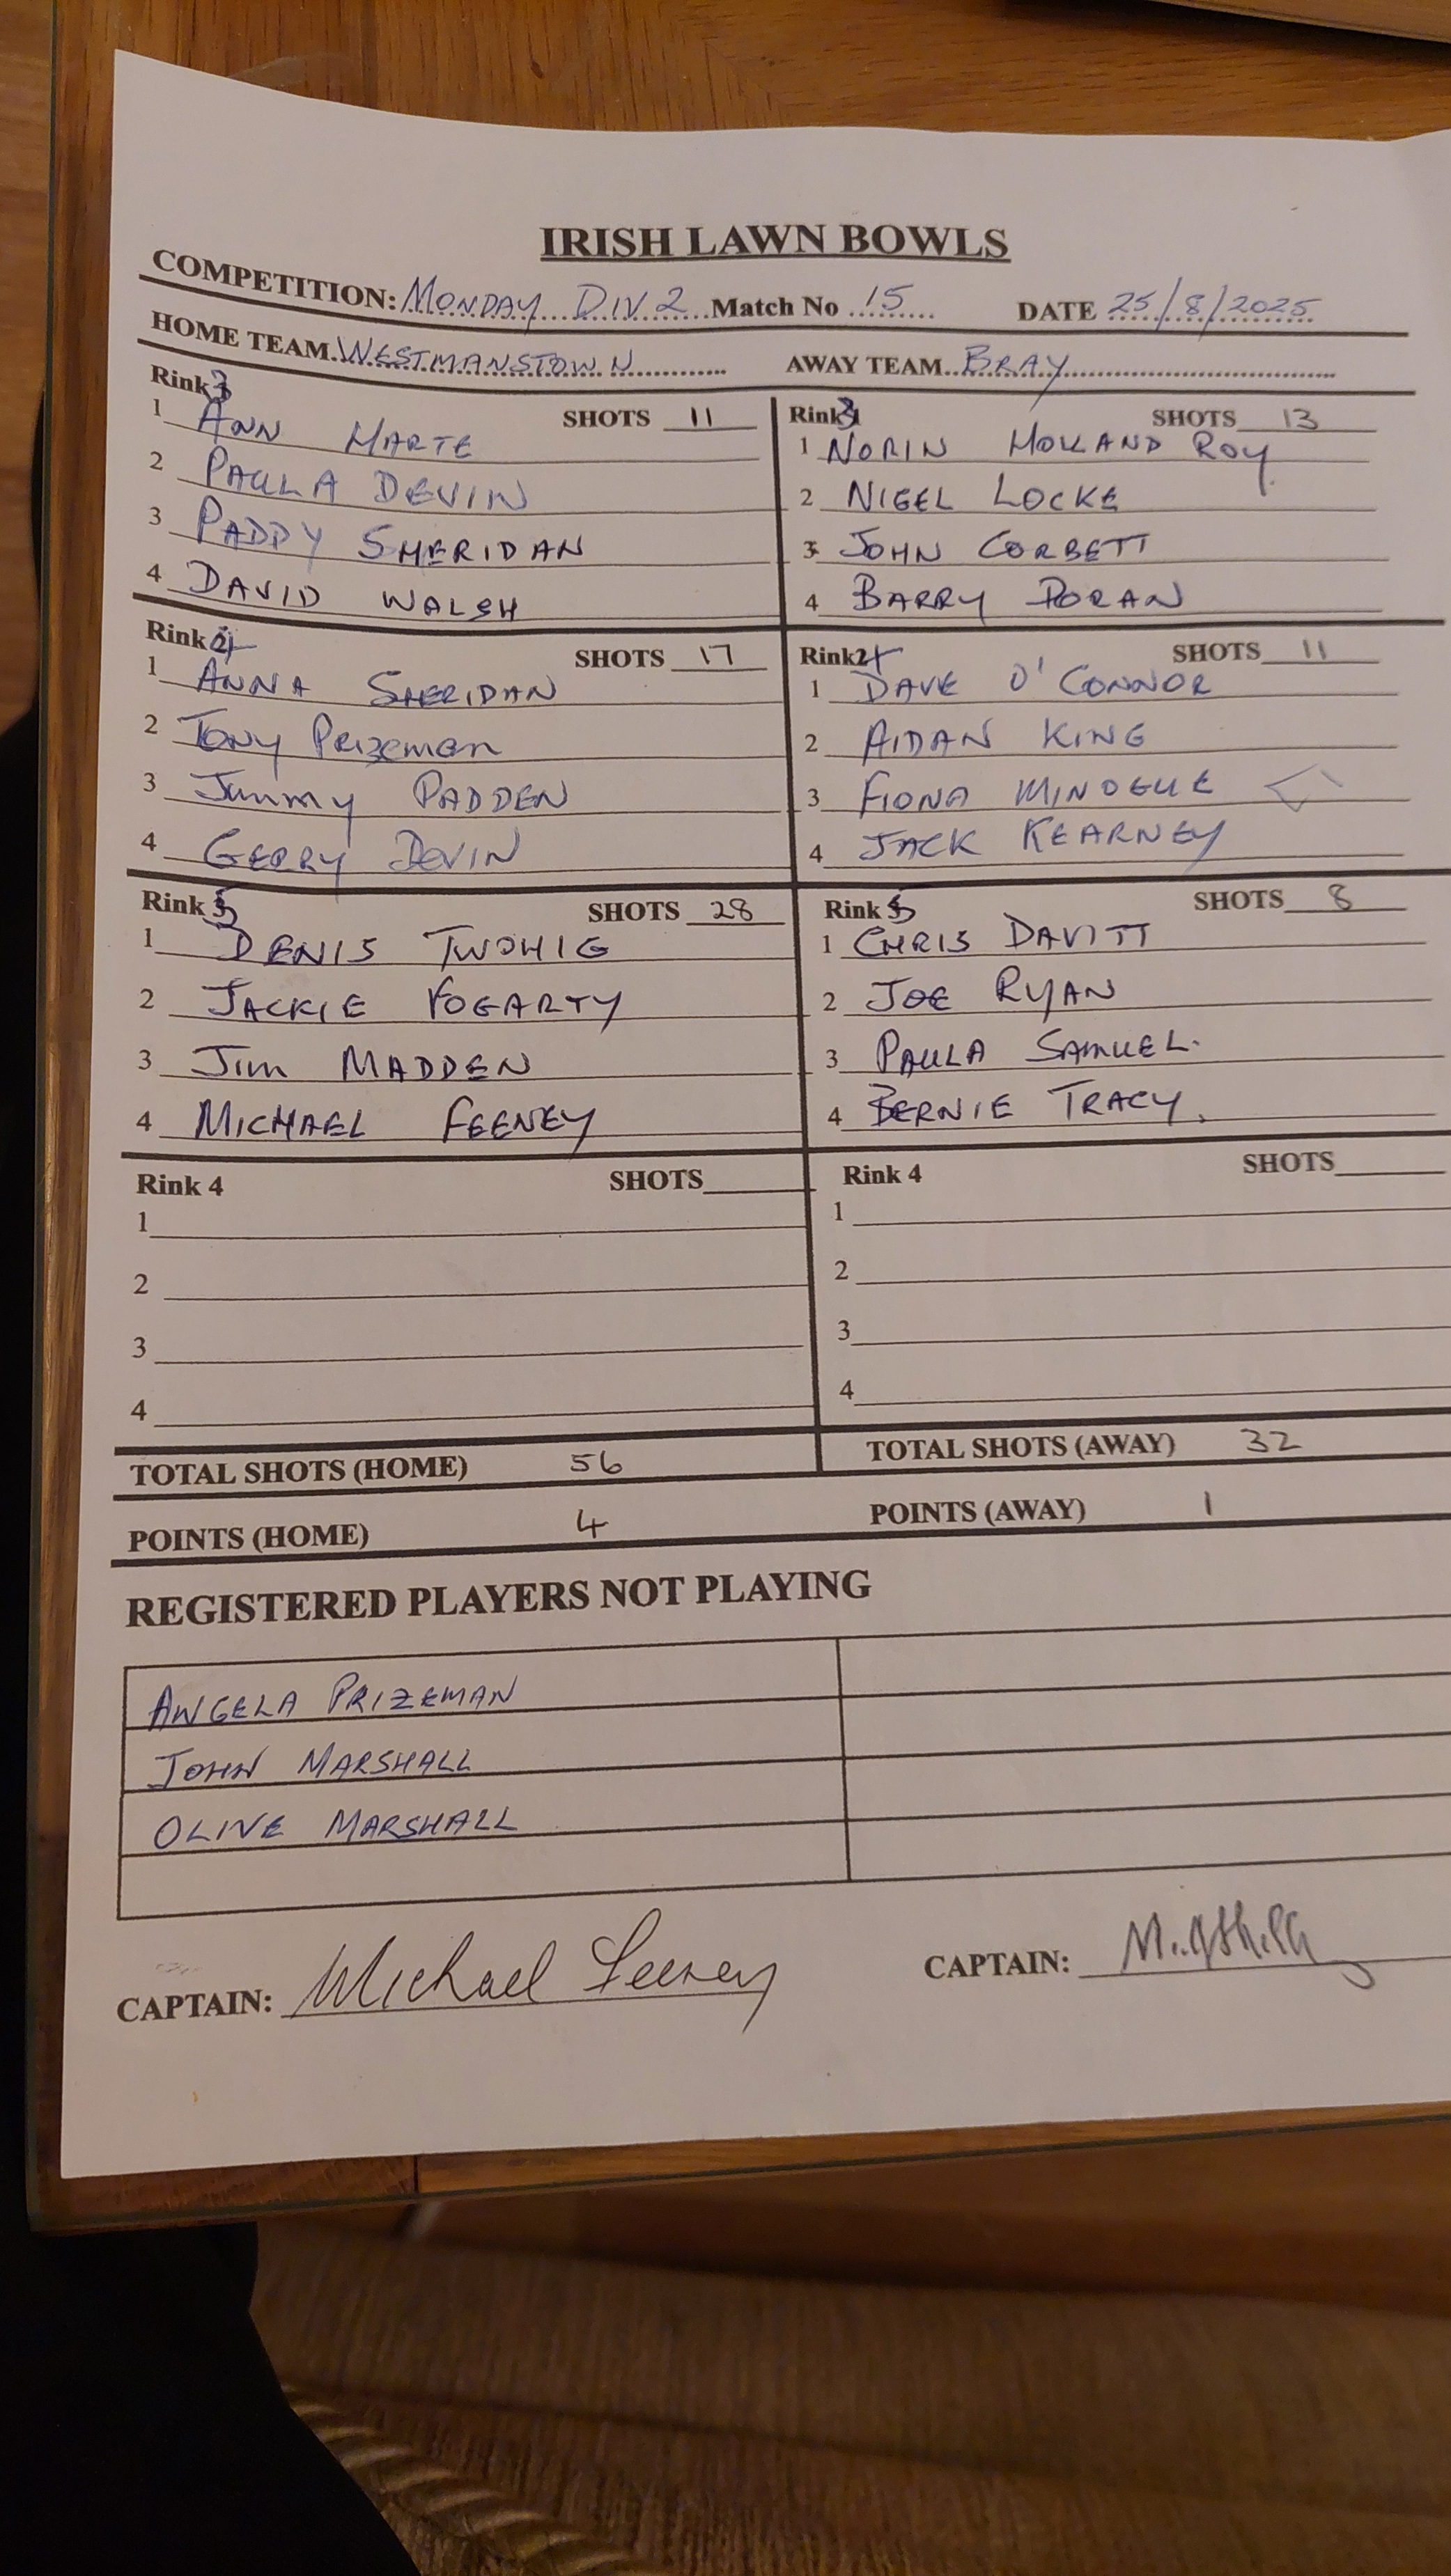 IRISH LAWN BOWLS
COMPETITION: MONDAY DIV 2 Match No 15 DATE 25/8/2025
HOME TEAM WESTMANSTOWN AWAY TEAM BRAY
Rink 3 SHOTS 11
1 ANN HARTE
2 PAULA DEVIN
3 PADDY SHERIDAN
4 DAVID WALSH
Rink 3 SHOTS 13
1 NORIN HOLLAND ROY
2 NIGEL LOCKE
3 JOHN CORBETT
4 BARRY DORAN
Rink 4 SHOTS 17
1 ANNA SHERIDAN
2 Tony Prizeman
3 Jimmy PADDEN
4 GERRY DEVIN
Rink 4 SHOTS 11
1 DAVE O'CONNOR
2 AIDAN KING
3 FIONA MINOGUE
4 JACK KEARNEY
Rink 5 SHOTS 28
1 DENIS TWOHIG
2 JACKIE FOGARTY
3 Jim MADDEN
4 MICHAEL FEENEY
Rink 5 SHOTS 8
1 CHRIS DAVITT
2 JOE RYAN
3 PAULA SAMUEL.
4 BERNIE TRACY.
Rink 4 SHOTS
1
2
3
4
Rink 4 SHOTS
1
2
3
4
TOTAL SHOTS (HOME) 56 TOTAL SHOTS (AWAY) 32
POINTS (HOME) 4 POINTS (AWAY) 1
REGISTERED PLAYERS NOT PLAYING
ANGELA PRIZEMAN
JOHN MARSHALL
OLIVE MARSHALL
CAPTAIN: Michael Feeney CAPTAIN: